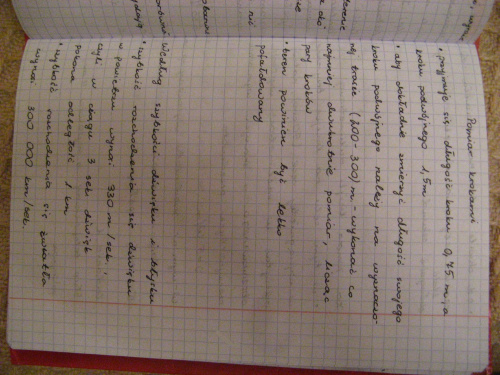 Pomiar krokami
• przyjmuje się długość kroku 0,75 m, a
kroku podwójnego 1,5 m
• aby dokładnie zmierzyć długość swojego
kroku podwójnego należy na wyznaczo-
nej trasie (200 - 300) m - wykonać co
najmniej dwukrotnie pomiar, licząc
pary kroków
• teren powinien być lekko
pofałdowany
Według szybkości dźwięku i błysku
• szybkość rozchodzenia się dźwięku
w powietrzu wynosi 330 m/sek.,
czyli w ciągu 3 sek dźwięk
pokona odległość 1 km
• szybkość rozchodzenia się światła
wynosi 300 000 km/sek.